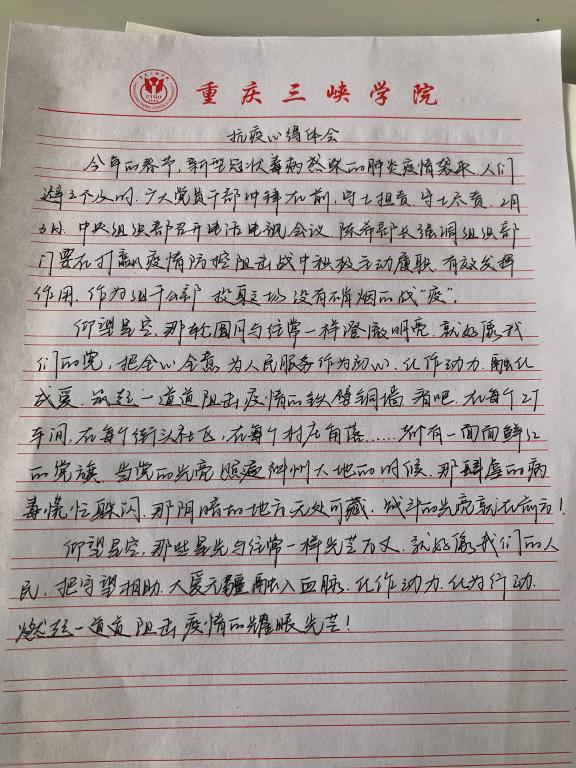 重庆三峡学院
抗疫心得体会
今年的春节，新型冠状毒病感染的肺炎疫情袭来，人们
避之不及时，广大党员干部冲锋在前，守土担责、守土尽责。2月
3日，中央组织部召开电话电视会议，陈希部长强调组织部
门要在打赢疫情防控阻击战中积极主动履职，有效发挥
作用。作为组干部，投身这场没有硝烟的战“疫”。
仰望星空，那轮圆月与往常一样澄澈明亮，就好像我
们的党，把全心全意为人民服务作为初心，化作动力，融化
成爱，筑起一道道阻击疫情的铁壁铜墙。看吧，在每个
车间，在每个街头社区，在每个村庄角落……都有一面面鲜红
的党旗，当党的光亮照遍神州大地的时候，那肆虐的病
毒慌忙躲闪，那阴暗的地方无处可藏，战斗的光亮就在前方！
仰望星空，那些星光与往常一样光芒万丈，就好像我们的人
民，把守望相助、大爱无疆融入血脉，化作动力，化为行动，
燃起一道道阻击疫情的耀眼光芒！